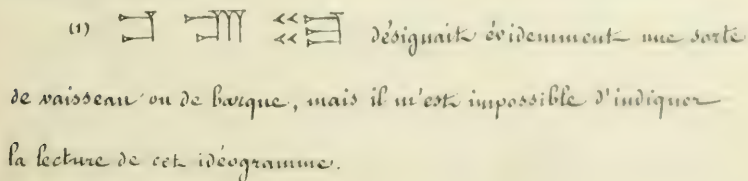 (1) désignait évidemment une sorte
de vaisseau ou de barque, mais il m'est impossible d'indiquer
la lecture de cet idéogramme.